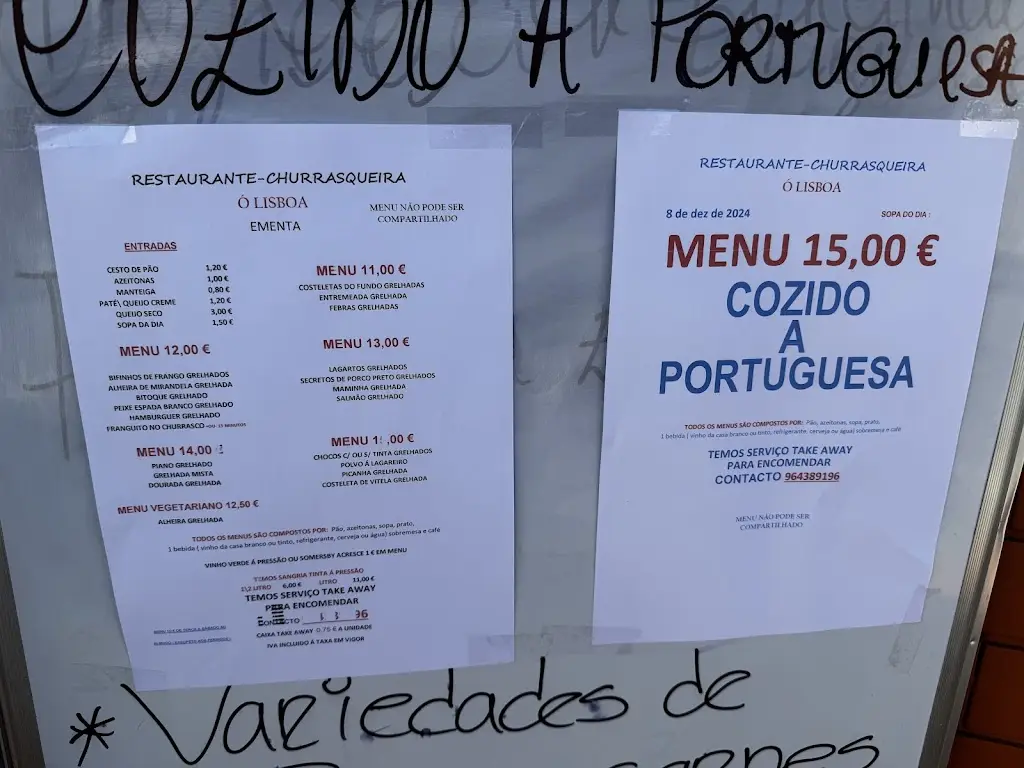 COZIDO A PORTUGUESA
RESTAURANTE-CHURRASQUEIRA
Ó LISBOA
EMENTA
MENU NÃO PODE SER
COMPARTILHADO
ENTRADAS
CESTO DE PÃO 1,20 €
AZEITONAS 1,00 €
MANTEIGA 0,80 €
PATÉ\ QUEIJO CREME 1,20 €
QUEIJO SECO 3,00 €
SOPA DA DIA 1,50 €
MENU 11,00 €
COSTELETAS DO FUNDO GRELHADAS
ENTREMEADA GRELHADA
FEBRAS GRELHADAS
MENU 12,00 €
BIFINHOS DE FRANGO GRELHADOS
ALHEIRA DE MIRANDELA GRELHADA
BITOQUE GRELHADO
PEIXE ESPADA BRANCO GRELHADO
HAMBURGUER GRELHADO
FRANGUITO NO CHURRASCO
MENU 13,00 €
LAGARTOS GRELHADOS
SECRETOS DE PORCO PRETO GRELHADOS
MAMINHA GRELHADA
SALMÃO GRELHADO
MENU 14,00
PIANO GRELHADO
GRELHADA MISTA
DOURADA GRELHADA
MENU ,00 €
CHOCOS C/ OU S/ TINTA GRELHADOS
POLVO À LAGAREIRO
PICANHA GRELHADA
COSTELETA DE VITELA GRELHADA
MENU VEGETARIANO 12,50 €
ALHEIRA GRELHADA
TODOS OS MENUS SÃO COMPOSTOS POR: Pão, azeitonas, sopa, prato,
1 bebida ( vinho da casa branco ou tinto, refrigerante, cerveja ou água) sobremesa e café
VINHO VERDE Á PRESSÃO OU SOMERSBY ACRESCE 1 € EM MENU
TEMOS SANGRIA TINTA Á PRESSÃO
1\2 LITRO 6,00 € LITRO 11,00 €
TEMOS SERVIÇO TAKE AWAY
PARA ENCOMENDAR
CONTACTO 96
CAIXA TAKE AWAY 0,75 € A UNIDADE
IVA INCLUIDO Á TAXA EM VIGOR
RESTAURANTE-CHURRASQUEIRA
Ó LISBOA
8 de dez de 2024 SOPA DO DIA :
MENU 15,00 €
COZIDO
A
PORTUGUESA
TODOS OS MENUS SÃO COMPOSTOS POR: Pão, azeitonas, sopa, prato,
1 bebida ( vinho da casa branco ou tinto, refrigerante, cerveja ou água) sobremesa e café
TEMOS SERVIÇO TAKE AWAY
PARA ENCOMENDAR
CONTACTO 964389196
MENU NÃO PODE SER
COMPARTILHADO
* Variedades de